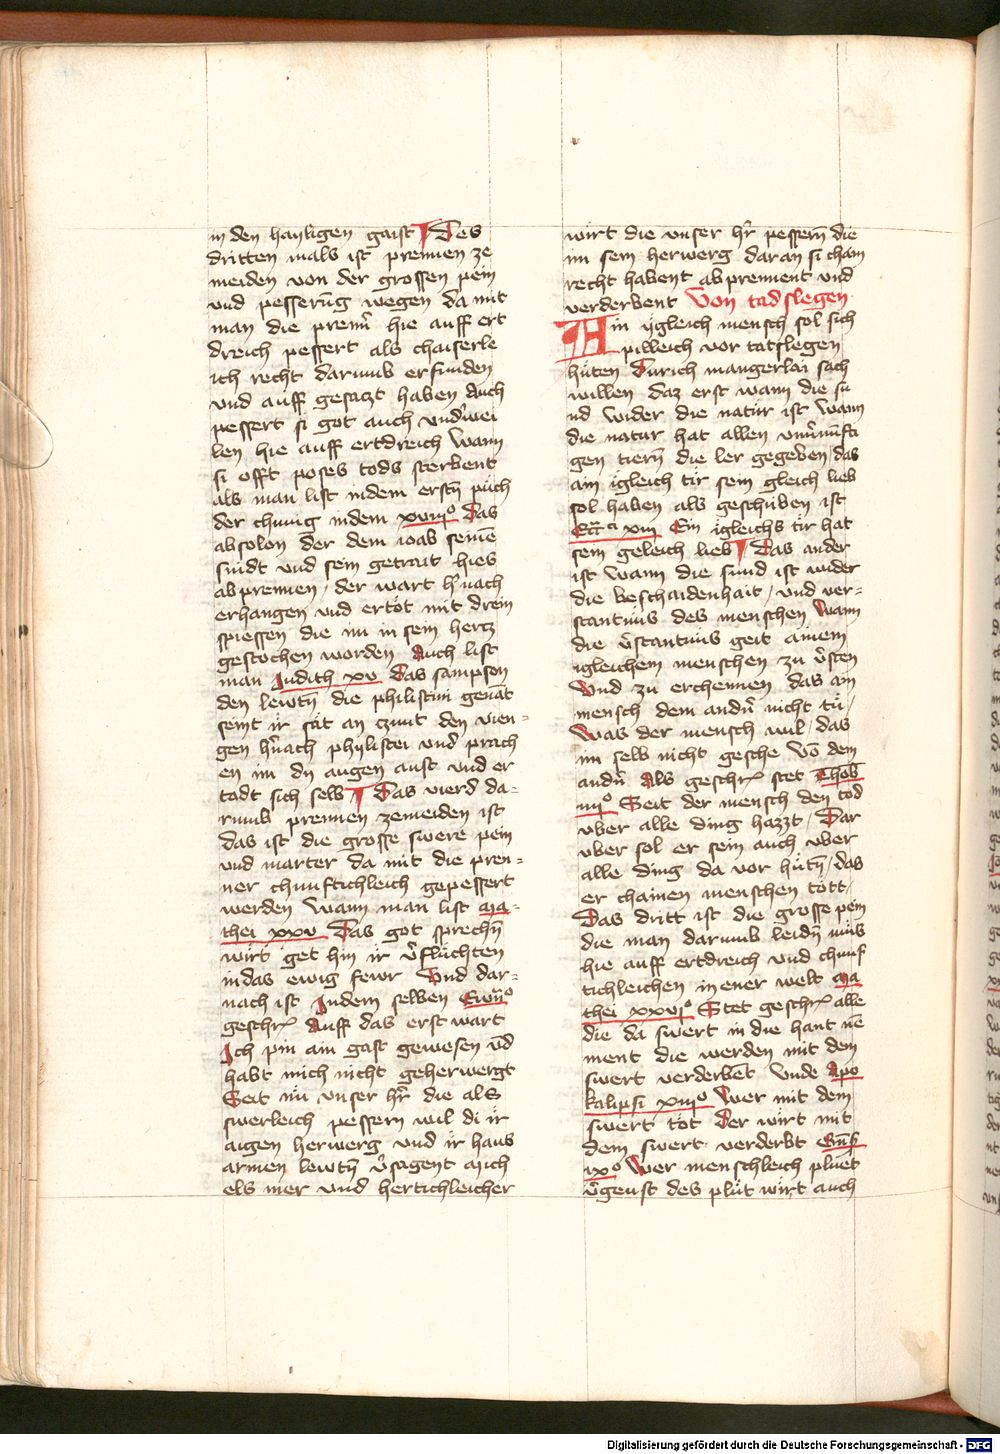 in den hayligen gaist ¶ Des
dritten mals ist prennen ze
meiden von der grossen pein
vnd pesserūg wegen da mit
man die prenn̄ hie auff ert
dreich pessert als chaiserle
ich recht darumb erfunden
vnd auff gesaczt haben Auch
pessert si got auch vnd'wei
len hie auff ertdreich Wann
si offt poses tods sterbent
als man list indem erstn̄ puͤch
der chunig indem xviijº Das
absolon der dem ioab seinē
sindt vnd sein getrait hies
abprennen / der wart h'nach
erhangen vnd ertöt mit drein
spiessen die im in sein hertz
gestochen worden Auch list
man Judith xv Das sampson
den lewtn̄ die philistim genāt
seint ir sat an czunt den vien-
gen h'nach phylistei vnd prach
en im dy augen aust vnd er
tödt sich selb ¶ Das vierd da-
rumb prennen zemeiden ist
das ist die grosse swere pein
vnd marter da mit die pren-
ner chunftichleich gepessert
werden Wann man list Ma-
thei xxv Das got sprechn̄
wirt get hin ir v'fluchten
indas ewig fewr Vnd dar-
nach ist Indem selben Ewn̄º
geschr' Auff das erst wart
Ich pin ain gast gewesen vn̄d
habt mich nicht geherwergt
Seit nu vnser h'r die als
swerleich pessern wil di ir
aigen herwerg vnd ir haus
armen lewtn̄ v'sagent Mich
els mer vnd hertichleicher
wirt die vnser h'r pessern̄ die
im sein herwerg daran si chain
recht habent abprennent vnd
verderbent Von tadslegen
Ain ygleich mensch sol sich
pilleich vor tatslegen
huten Durich mangerlai sach
willen daz erst wann die su
nd wider die natur ist Wann
die natur hat allen vnu'nunfti
gen tiern̄ die ler gegeben das
ain igleich tir sein gleich lieb
sol haben als geschriben ist
Ecc̄ci xiij Ein igleichs tir hat
sein geleich lieb ¶ Das ander
ist Wann die sund ist wider
die beschaidenhait / vnd ver-
stantnus des menschen Wann
die v'stantnus geit ainem
igleichem menschen zu v'sten
Vnd zu erchennen das ain
mensch dem andn̄ nicht tu /
Was der mensch wil / das
im selb nicht gesche Vō dem
andn̄ Als geschr' stet Thob̄
iiijº Seit der mensch den tod
vber alle ding hazzt / Dar
vber sol er sein auch vber
alle ding da vor hutn̄ / das
er chainen menschen tött /
Das dritt ist die grosse pein
die man darumb leidn̄ mus
hie auff ertdreich vnd chunf
tichleichen in ener welt Ma
thei xxvjº Stet geschr' alle
die da swert in die hant nē
ment die werden mit dem
swert verderbēt Vnde Apo
kalipsi xiijº Wer mit dem
swert töt Der wirt mit
dem swert verderbt Gen̄s̄
ixº Wer menschleich pluet
v'geust des plut wirt auch
Digitalisierung gefördert durch die Deutsche Forschungsgemeinschaft - DFG